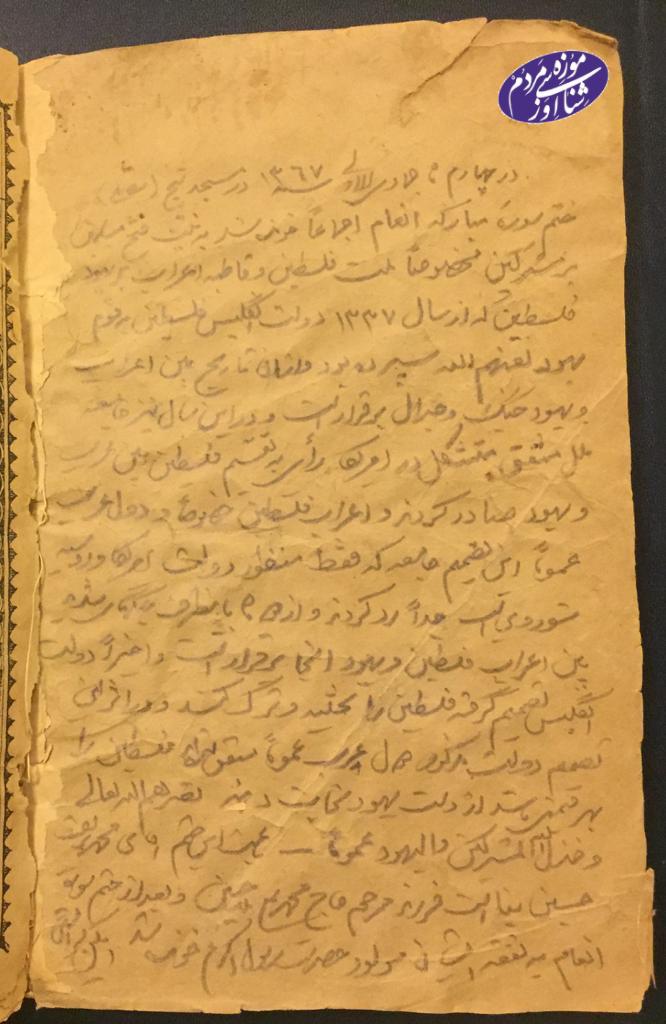 موزه مردم شناسی اوز
در چهارم جمادی الاولی سنه ۱۳۶۷ در مسجد
ختم سوره مبارکه انعام اجماعاً خوانده شد به نیت فتح مسلمین
بر مشرکین مخصوصاً ملت فلسطین و قاطبه اعراب بر یهود
فلسطین که از سال ۱۳۳۷ دولت انگلیس فلسطین به قوم
یهود لعنهم الله سپرده بود و از آن تاریخ بین اعراب
و یهود جنگ و جدال برقرار است و در این سال نیز جامعه
ملل متفق متشکل در امریکا رأی به تقسیم فلسطین بین عرب
و یهود صادر کردند و اعراب فلسطین خصوصاً و دول عربی
عموماً این تصمیم جامعه که فقط منظور دولت امریکا و روسیه
شوروی است جداً رد کردند و از
بین اعراب فلسطین و یهود آنجا برقرار است و اخیراً دولت
انگلیس تصمیم گرفته فلسطین را تخلیه و ترک کند و در اثر این
تصمیم دولت مذکور دول عرب عموماً متفق فلسطین را
بهر قیمتی باشد از دست یهود نجات دهند نصرهم الله تعالی
و خذل الله المشرکین والیهود عموماً این ختم آقای محمد
حسین است فرزند مرحوم حاج محمد و بعد از ختم سوره
انعام به نفقه ایشان مولود حضرت رسول اکرم خوانده شد